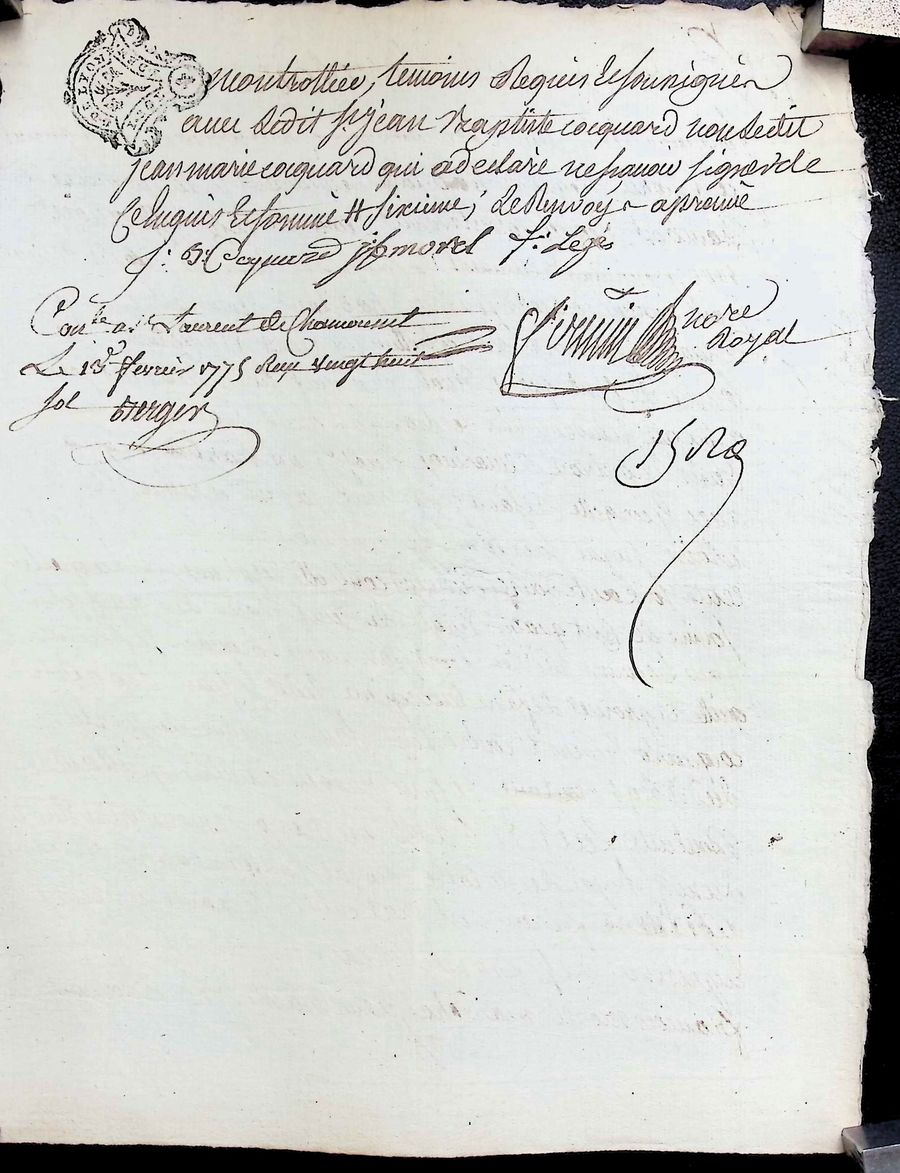 moncontrollée, temoins Requis & soussignés
avec Ledit Sr. jean Baptiste cocquard non Ledit
jean marie cocquard qui a declaré ne scavoir signer de
ce Enquis & sommé # sixieme, Le Renvoy approuvé
J: B: Coquard jfmorel F: Legés
Conlé a St Laurent de Chamousset
Le 13e fevrier 1775 Reçu vingt huit
sol Berger
nore
Royal